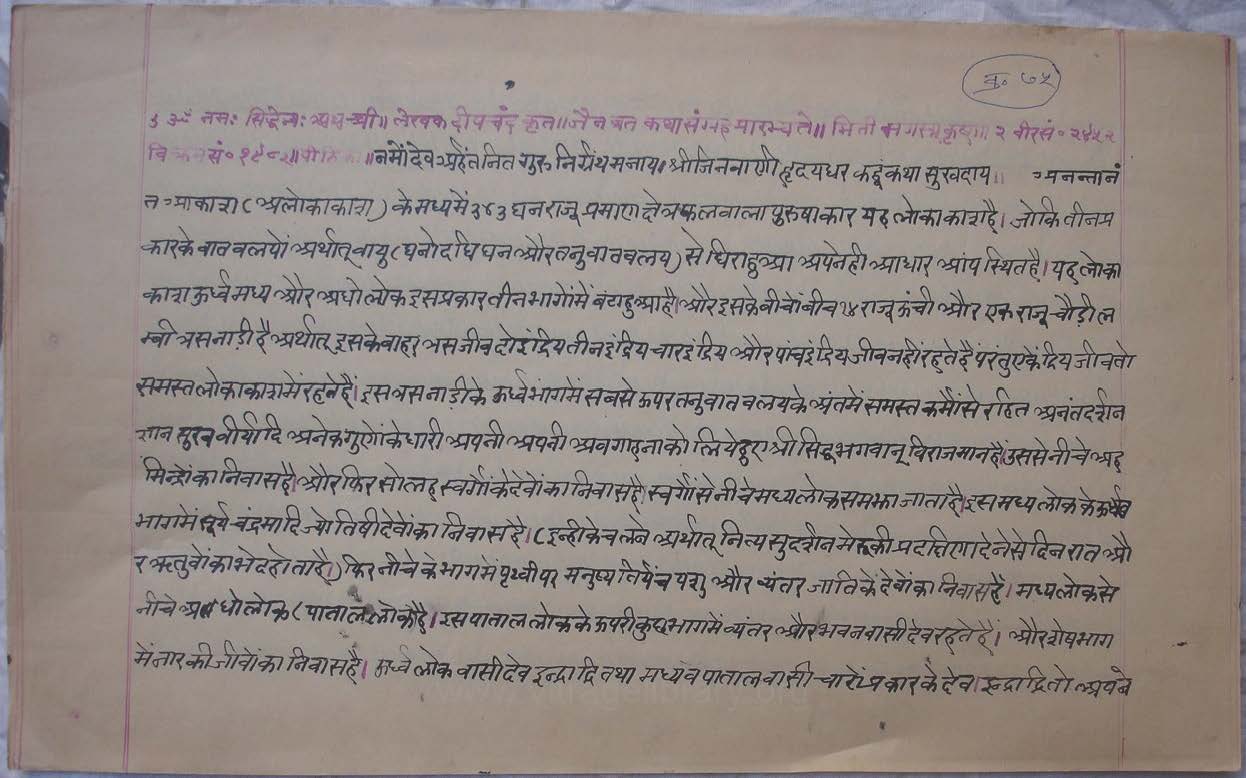 क्र० ७५
ॐ नमः सिद्धेभ्यः अथ श्री॥ लेखक दीपचंद कृत॥ जैन व्रत कथा संग्रह प्रारभ्यते॥ मिती मगसर कृष्ण॥ २ वीरसं० २४५२
विक्रमसं० १९८२॥ पीठिका॥ नमों देव अर्हंत नित गुरु निर्ग्रंथ मनाय। श्री जिनवाणी हृदय धर कहूं कथा सुखदाय॥ अनन्तानं
त आकाश (अलोकाकाश) के मध्य में ३४३ घन राजू प्रमाण क्षेत्रफल वाला पुरुषाकार यह लोकाकाश है। जो कि तीन प्र
कार के वातवलयों अर्थात् वायु (घनोदधि घन और तनुवातवलय) से घिरा हुआ अपने ही आधार आप स्थित है। यह लोका
काश ऊर्ध्व मध्य और अधोलोक इस प्रकार तीन भागों में बंटा हुआ है। और इसके बीचों बीच १४ राजू ऊंची और एक राजू चौड़ी ल
म्बी त्रस नाड़ी है अर्थात् इसके बाहर त्रस जीव दो इंद्रिय तीन इंद्रिय चार इंद्रिय और पांच इंद्रिय जीव नहीं रहते हैं परंतु एकेंद्रिय जीव तो
समस्त लोकाकाश में रहते हैं। इस त्रस नाड़ी के ऊर्ध्व भाग में सबसे ऊपर तनुवातवलय के अंत में समस्त कर्मों से रहित अनंत दर्शन
ज्ञान सुख वीर्यादि अनेक गुणों के धारी अपनी अपनी अवगाहना को लिये हुए श्री सिद्ध भगवान् विराजमान हैं। उससे नीचे अह
मिन्द्रों का निवास है। और फिर सोलह स्वर्गों के देवों का निवास है। स्वर्गों से नीचे मध्य लोक समझा जाता है। इस मध्य लोक के ऊर्ध्व
भाग में सूर्य चंद्रमादि ज्योतिषी देवों का निवास है। (इन्हीं के चलने अर्थात् नित्य सुदर्शन मेरु की प्रदक्षिणा देने से दिन रात औ
र ऋतुवों का भेद होता है।) फिर नीचे के भाग में पृथ्वी पर मनुष्य तिर्यंच पशु और व्यंतर जाति के देवों का निवास है। मध्य लोक से
नीचे अधोलोक (पाताल लोक) है। इस पाताल लोक के ऊपरी कुछ भाग में व्यंतर और भवनवासी देव रहते हैं। और शेष भाग
में नारकी जीवों का निवास है। ऊर्ध्व लोक वासी देव इन्द्रादि तथा मध्य व पाताल वासी चारों प्रकार के देव। इन्द्रादि तो अपने